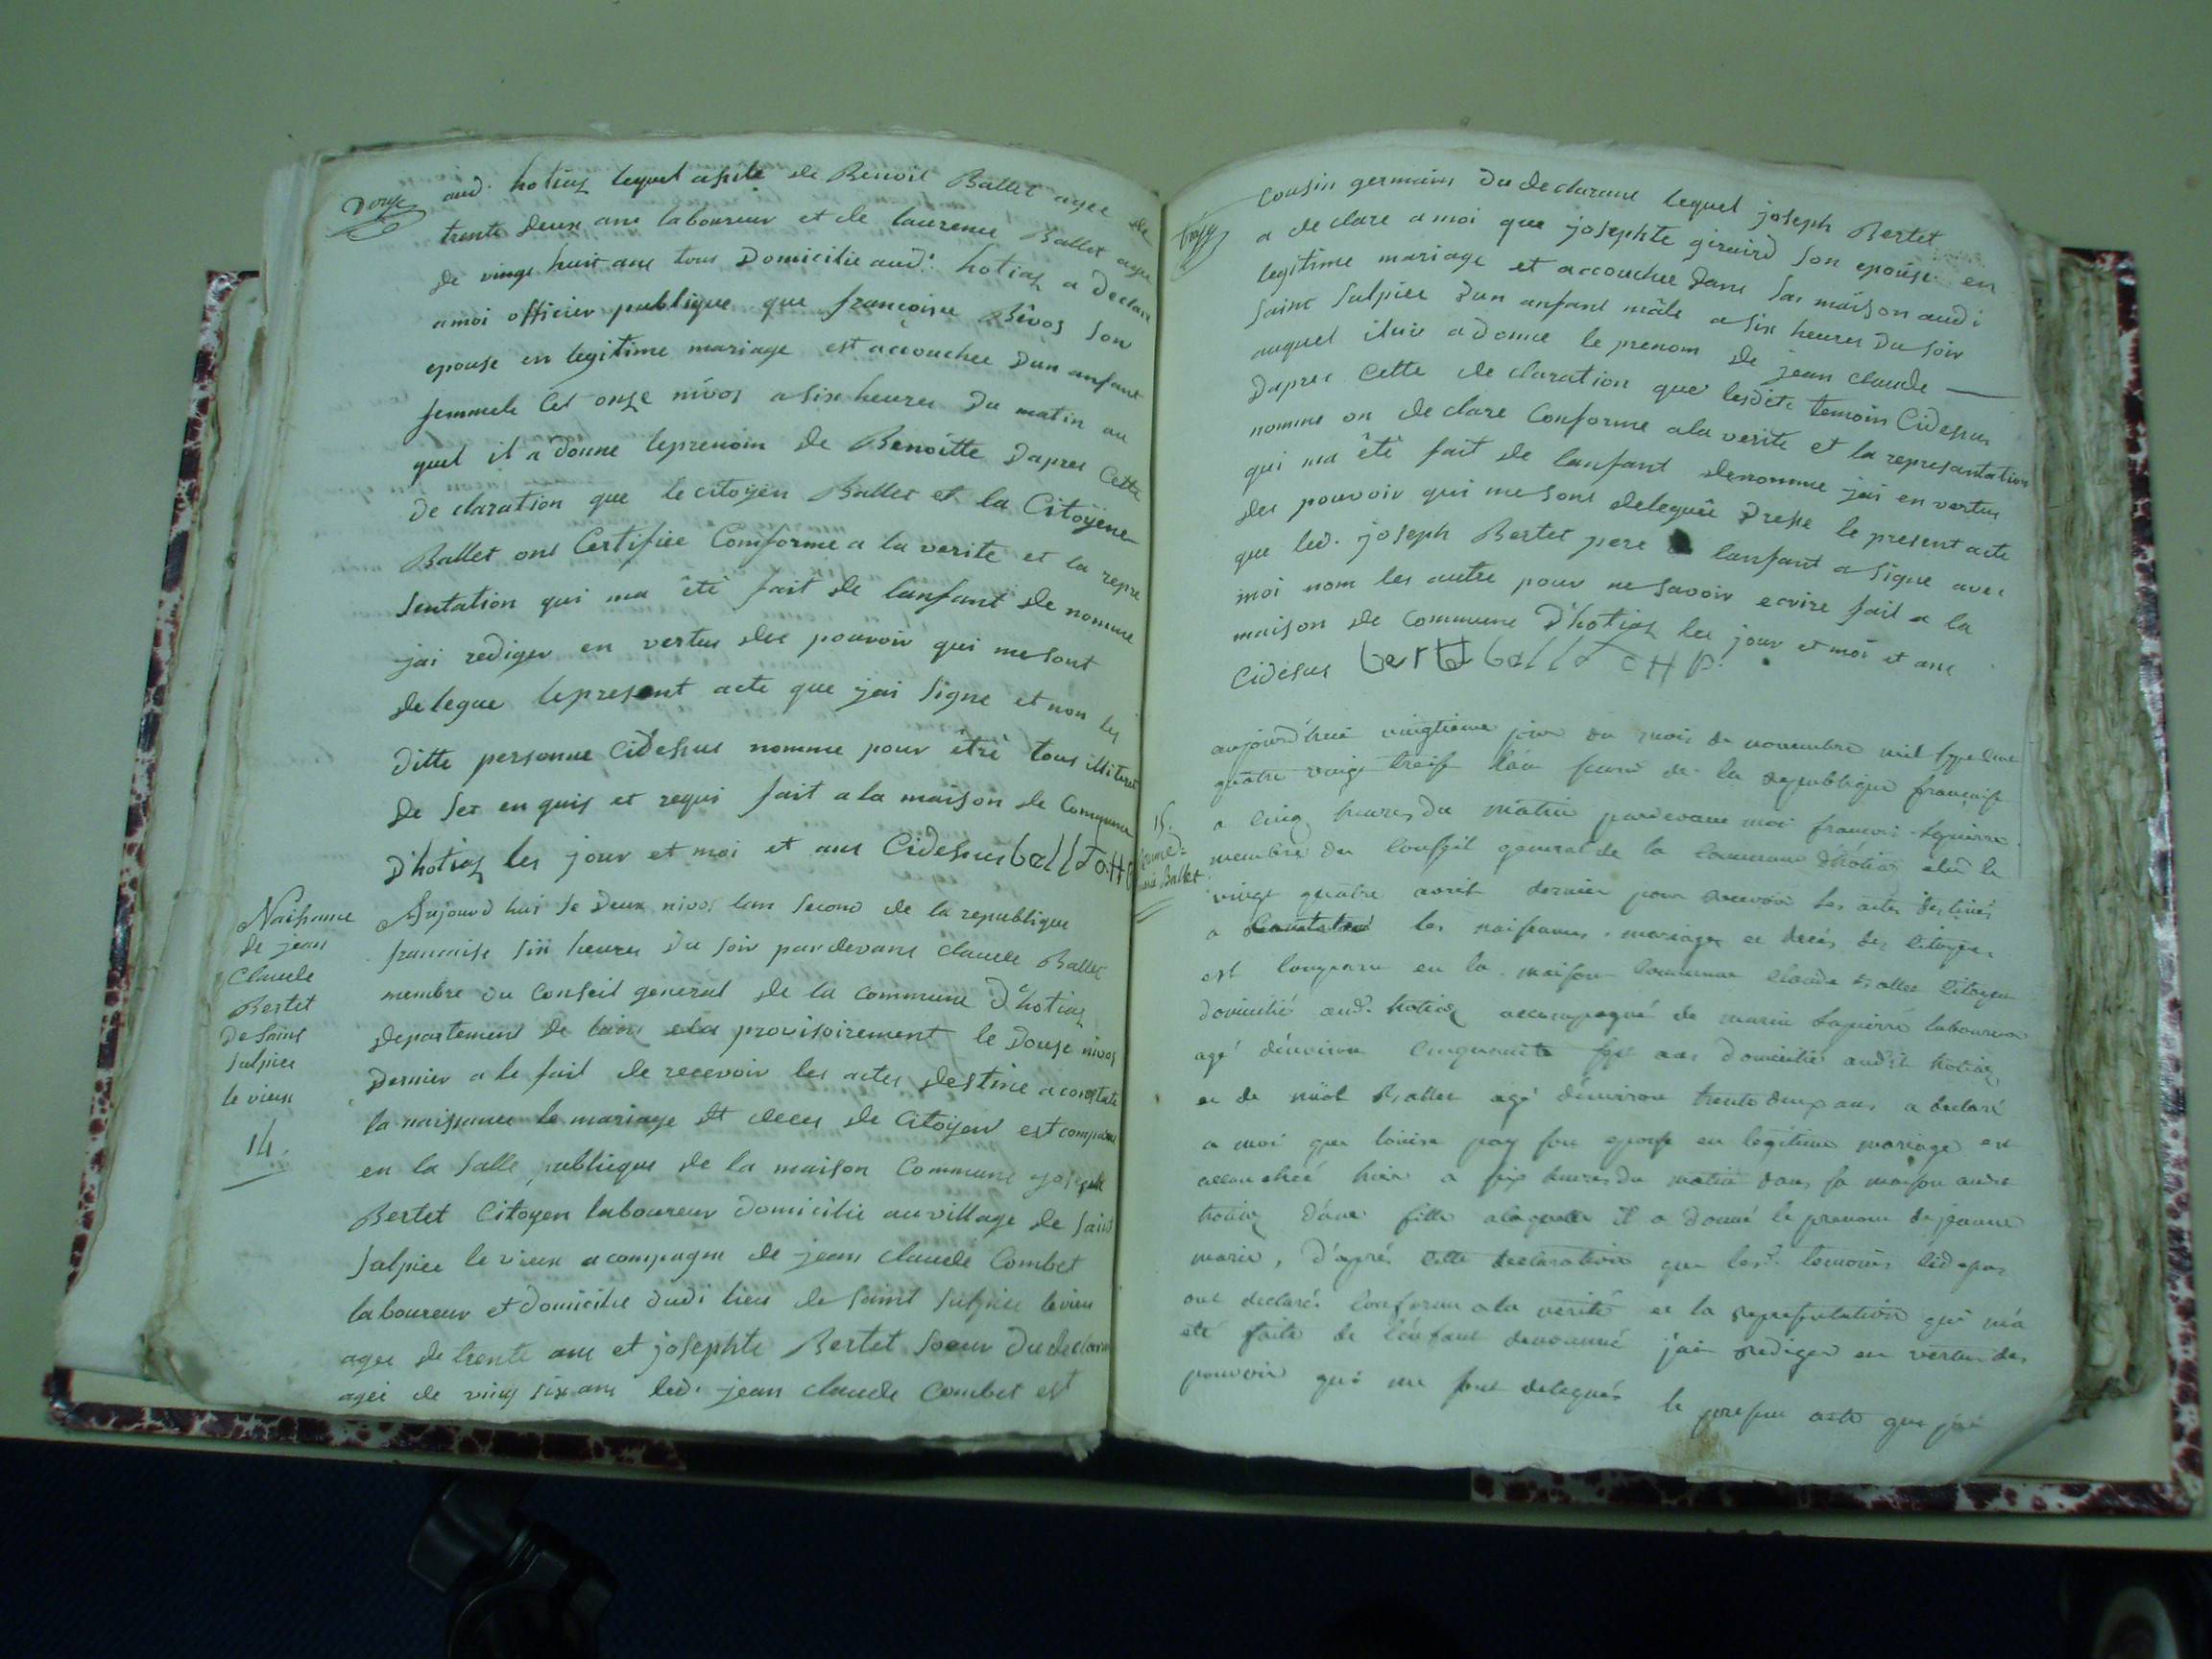 Douze
aud. hotiaz lequel asisté de Benoit Ballet agee de
trente deux ans laboureur et de laurence Ballet agee
de vingt huit ans tous Domicilie aud. hotiaz a declare
a moi officier publique que françoise son
epouse en legitime mariage est accouchee Dun anfant
femmele Cet onze nivos a six heures Du matin au
quel il a donne le prenoim de Benoitte Dapres Cette
De claration que le citoyen Ballet et la Citoyene
Ballet ont Certifiee Comforme a la verite et la repre
sentation qui ma êté fait de lanfant de nomme
jai rediger en vertus des pouvoir qui me sont
delegue le present acte que jai signe et non les
Ditte personne Cidessus nomme pour être tous illiteret
De Ser en quis et requi fait a la maison de Commune
D'hotiaz les jour et moi et ans Cidessus ballet
Naissance
de jean
Claude
Bertet
De Saint
Sulpice
le vieux
14.
Aujourd hui le Deux nivos lan second de la republique
francaise six heures Du soir pardevant claude Ballet
membre du Conseil general de la commune D'hotiaz
departement de lain elu provisoirement le Douze nivos
Dernier a le fait de recevoir les actes destine a constate
la naissance le mariage et deces de Citoyen est comparu
en la salle publique de la maison Commune joseph
Bertet Citoyen laboureur domicilie au village de Saint
Sulpice le vieux acompagne de jean claude Combet
laboureur et domicilie dudi lieu de Saint Sulpice le vieu
agee de trente ans et josephte Bertet soeur du declarant
agee de ving six ans led. jean claude Combet est
treize
Cousin germain Du declarant lequel joseph Bertet
a declare a moi que josephte giruird son epouse en
legitime mariage et accouchee Dans sas maison audi
Saint Sulpice Dun anfant mâle a six heures Du soir
auquel iluir a donne le prenom de jean claude
Dapres Cette de claration que lesdits temoin Cidessus
nomme on declare Conforme a la verite et la represantation
qui ma êté fait de lanfant denomme jai en vertus
des pouvoir qui me sont deleguée Dresse le present acte
que led. joseph Bertet pere lanfant a signe avec
moi nom les autre pour ne savoir ecrire fait a la
maison de commune D'hotiaz les jour et moi et ans
Cidesus bertet ballet
15.
Jeanne
Marie Ballet
aujourd'huit vingtieme jour du mois de novembre mil sept cent
quatre vingt treise l'an second de la republique française
a cinq heures du matin pardevant moi françois Lapierre
membre du Conseil general de la Commune d'hotiaz elu le
vingt quatre avril dernier pour recevoir les actes destinés
a Constater les naissances, mariages et décés des Citoyens
est comparu en la maison Commune claude Ballet Citoyen
domicilié aud. hotiaz accompagné de marin Lapierre laboureur
agé d'environ Cinquante sept ans domicilié audit hotiaz
et de Ballet agé d'environ trente deux ans a declaré
a moi que louise pay son epouse en legitime mariage est
accouchée hier a six heures du matin dans sa maison audit
hotiaz d'une fille a laquelle il a donné le prenom de jeanne
marie, d'aprés Cette declaration que les d. temoins
ont declarés Conforme a la verité et la representation qui m'a
eté faite de l'enfant denommé j'ai rediger en vertu des
pouvoir qui me sont delegués le present acte que j'ai